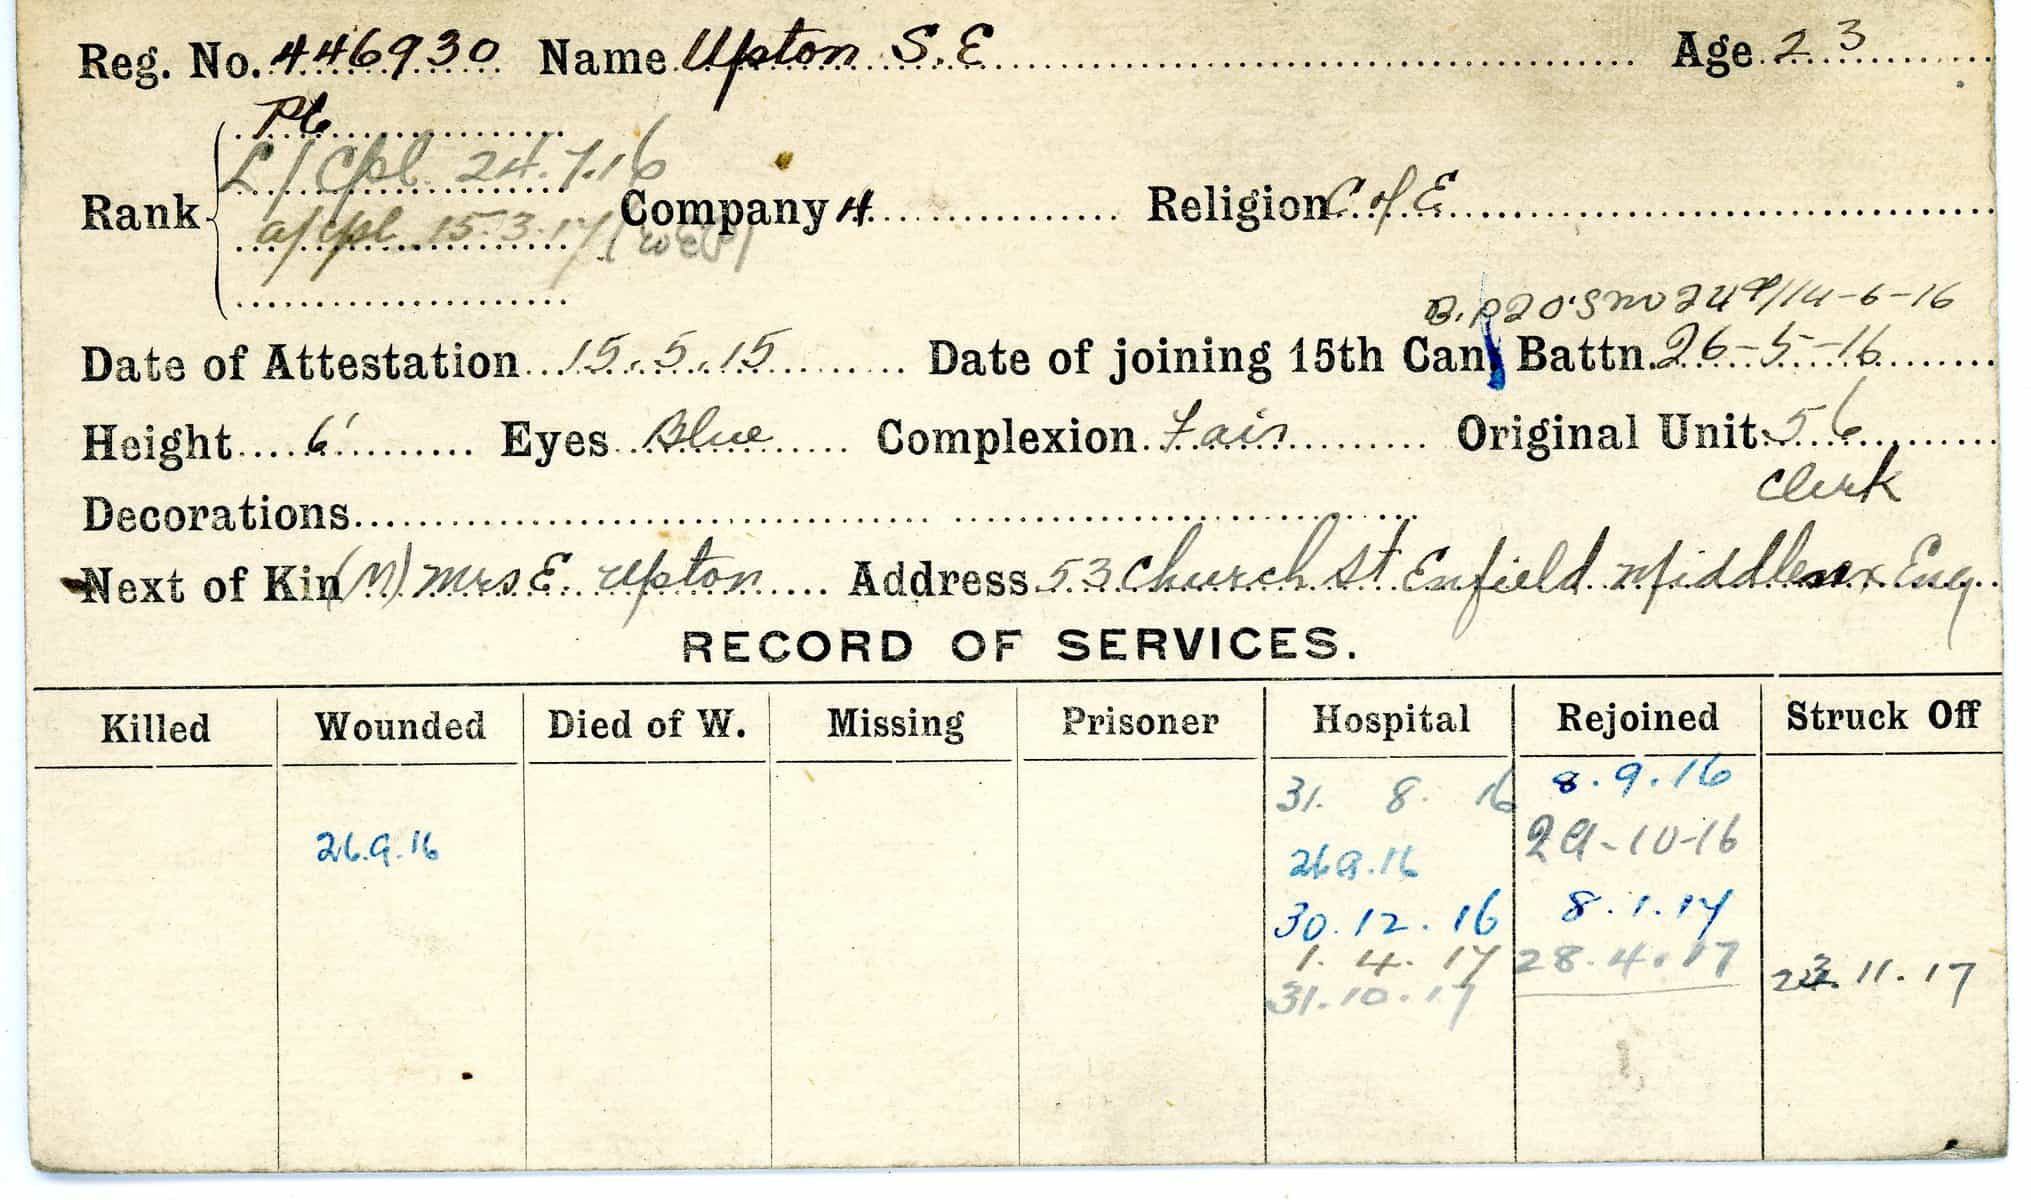 Reg. No. 446930 Name Upton S.E Age 23
Pte
L/Cpl 24.7.16
Rank Company 4 Religion C of E
a/cpl 15.3.17
14-6-16
Date of Attestation 15.5.15 Date of joining 15th Can Battn. 26-5-16
Height 6' Eyes Blue Complexion Fair Original Unit 56
Clerk
Decorations
Next of Kin (M) Mrs E. Upton Address 53 Church St Enfield Middlesex Eng
RECORD OF SERVICES.
Killed Wounded Died of W. Missing Prisoner Hospital Rejoined Struck Off
31. 8. 16 8.9.16
26.9.16 26.9.16 29-10-16
30.12.16 8.1.17
1. 4. 17 28.4.17 23.11.17
31.10.17